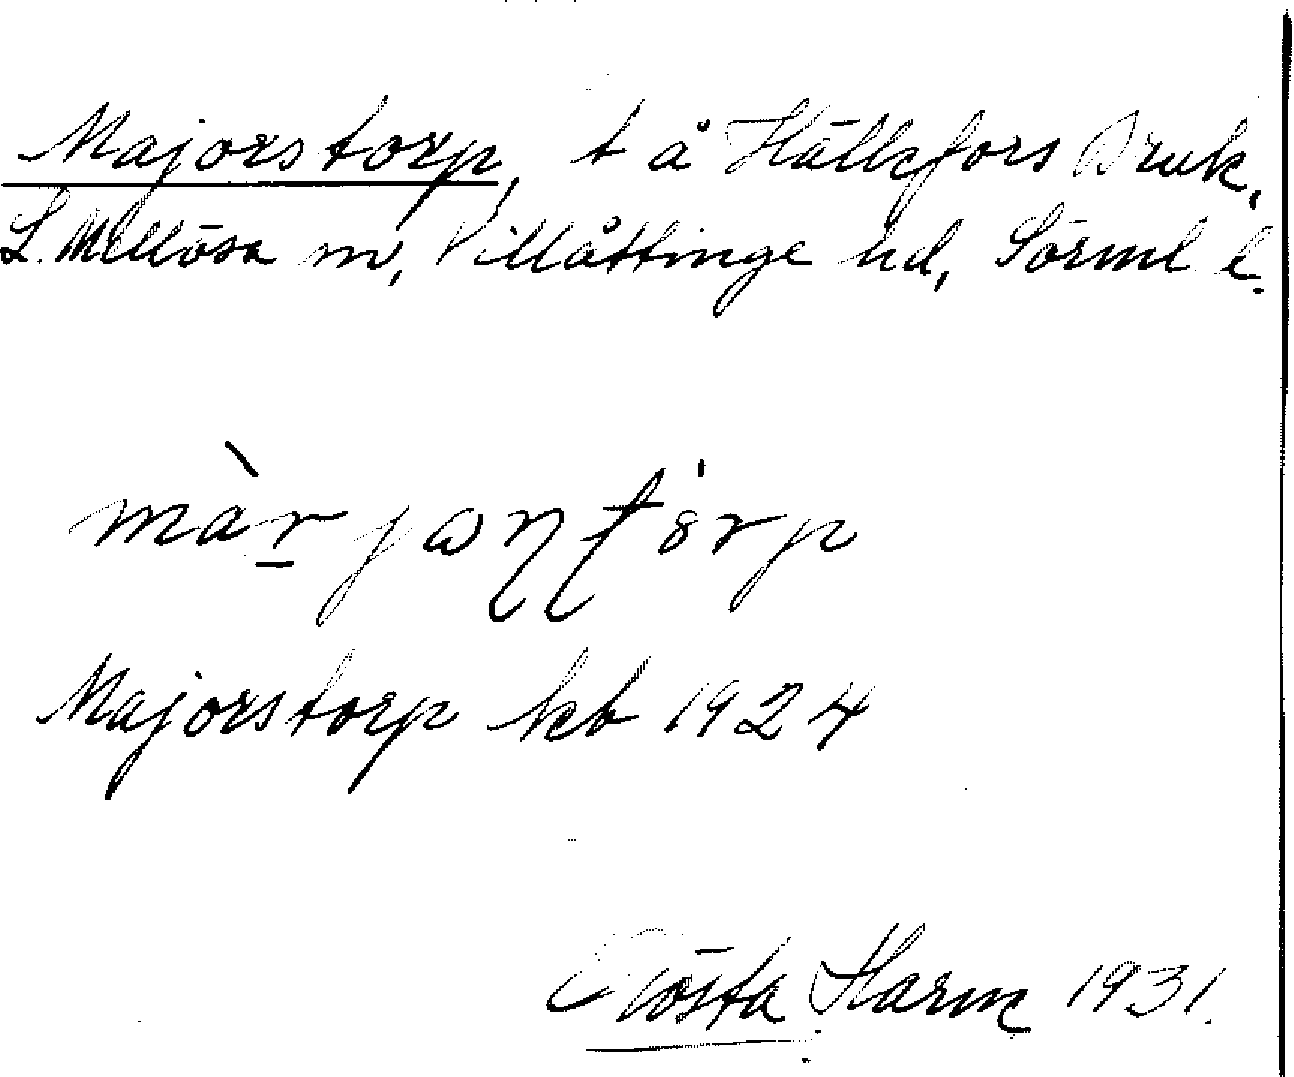 Majorstorp, t å Hällefors Bruk,
L. Mellösa sn, Villåttinge hd, Sörml l.
Majorstorp kb 1924
Gösta Harm 1931.